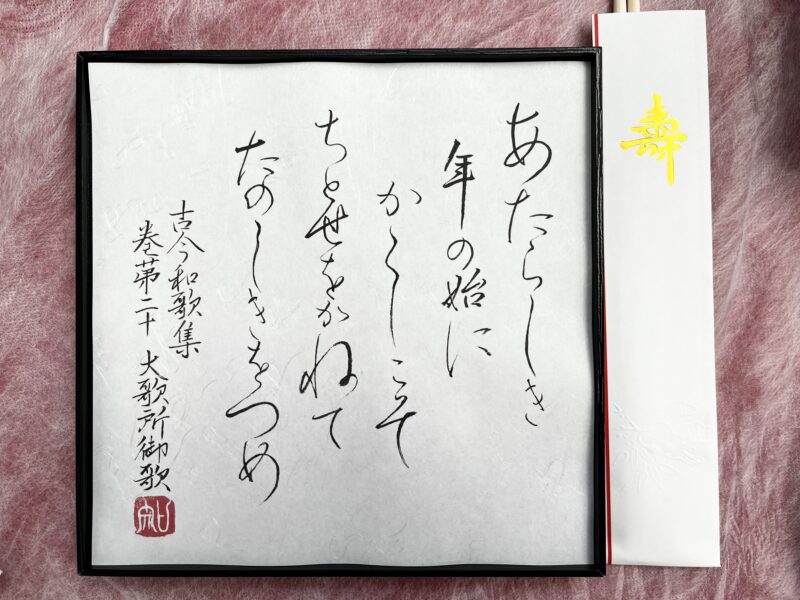 寿
あたらしき
年の始に
かくしこそ
ちとせをかねて
たのしきをつめ
古今和歌集
巻第二十 大歌所御歌